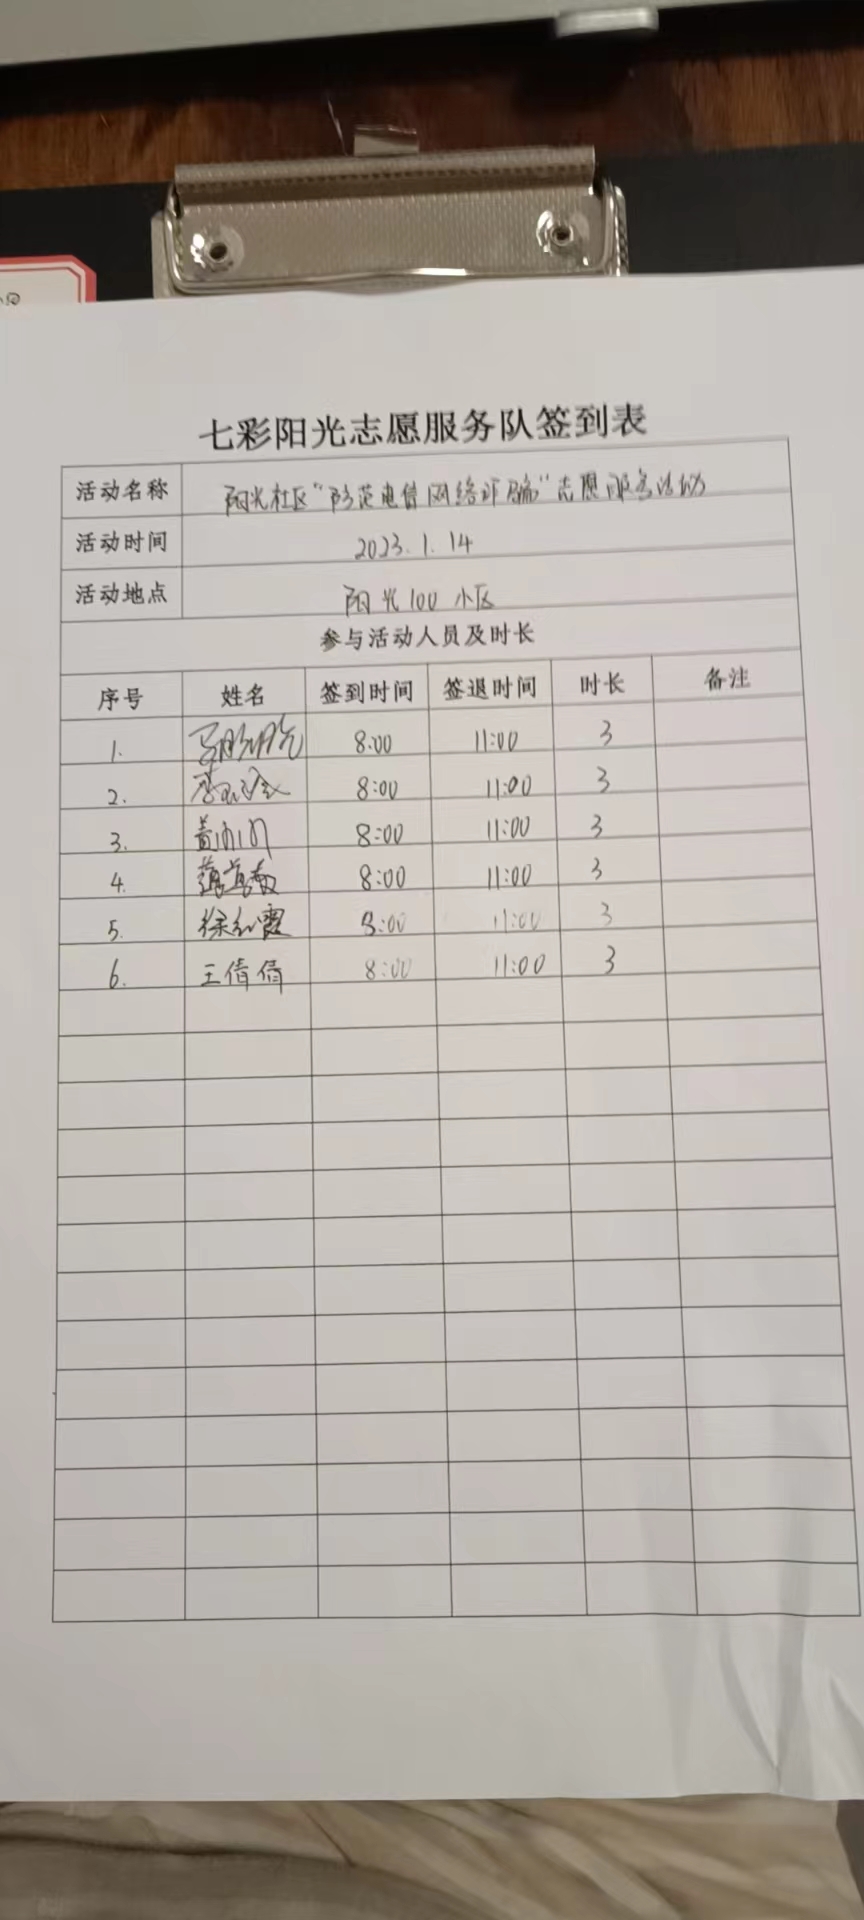 七彩阳光志愿服务队签到表
活动名称 阳光社区"防范电信网络诈骗"志愿服务活动
活动时间 2023.1.14
活动地点 阳光100小区
参与活动人员及时长
序号 姓名 签到时间 签退时间 时长 备注
1. 8:00 11:00 3
2. 8:00 11:00 3
3. 8:00 11:00 3
4. 8:00 11:00 3
5. 徐红霞 8:00 11:00 3
6. 王倩倩 8:00 11:00 3